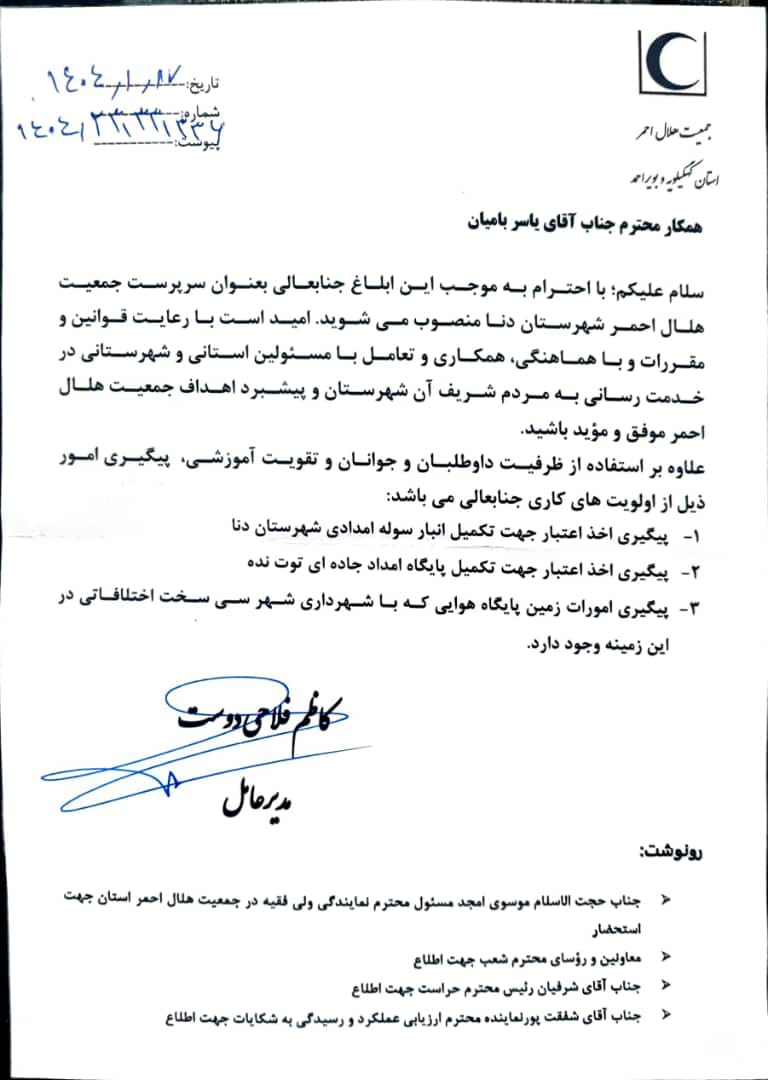 جمعیت هلال احمر
استان کهگیلویه و بویراحمد
تاریخ: ۱۴۰۴
شماره: ۱۴۰۴/
پیوست:
همکار محترم جناب آقای یاسر بامیان
سلام علیکم؛ با احترام به موجب این ابلاغ جنابعالی بعنوان سرپرست جمعیت
هلال احمر شهرستان دنا منصوب می شوید. امید است با رعایت قوانین و
مقررات و با هماهنگی، همکاری و تعامل با مسئولین استانی و شهرستانی در
خدمت رسانی به مردم شریف آن شهرستان و پیشبرد اهداف جمعیت هلال
احمر موفق و مؤید باشید.
علاوه بر استفاده از ظرفیت داوطلبان و جوانان و تقویت آموزشی، پیگیری امور
ذیل از اولویت های کاری جنابعالی می باشد:
۱- پیگیری اخذ اعتبار جهت تکمیل انبار سوله امدادی شهرستان دنا
۲- پیگیری اخذ اعتبار جهت تکمیل پایگاه امداد جاده ای توت نده
۳- پیگیری امورات زمین پایگاه هوایی که با شهرداری شهر سی سخت اختلافاتی در
این زمینه وجود دارد.
کاظم فلاحی دوست
مدیرعامل
رونوشت:
جناب حجت الاسلام موسوی امجد مسئول محترم نمایندگی ولی فقیه در جمعیت هلال احمر استان جهت
استحضار
معاونین و رؤسای محترم شعب جهت اطلاع
جناب آقای شرفیان رئیس محترم حراست جهت اطلاع
جناب آقای شفقت پورنماینده محترم ارزیابی عملکرد و رسیدگی به شکایات جهت اطلاع